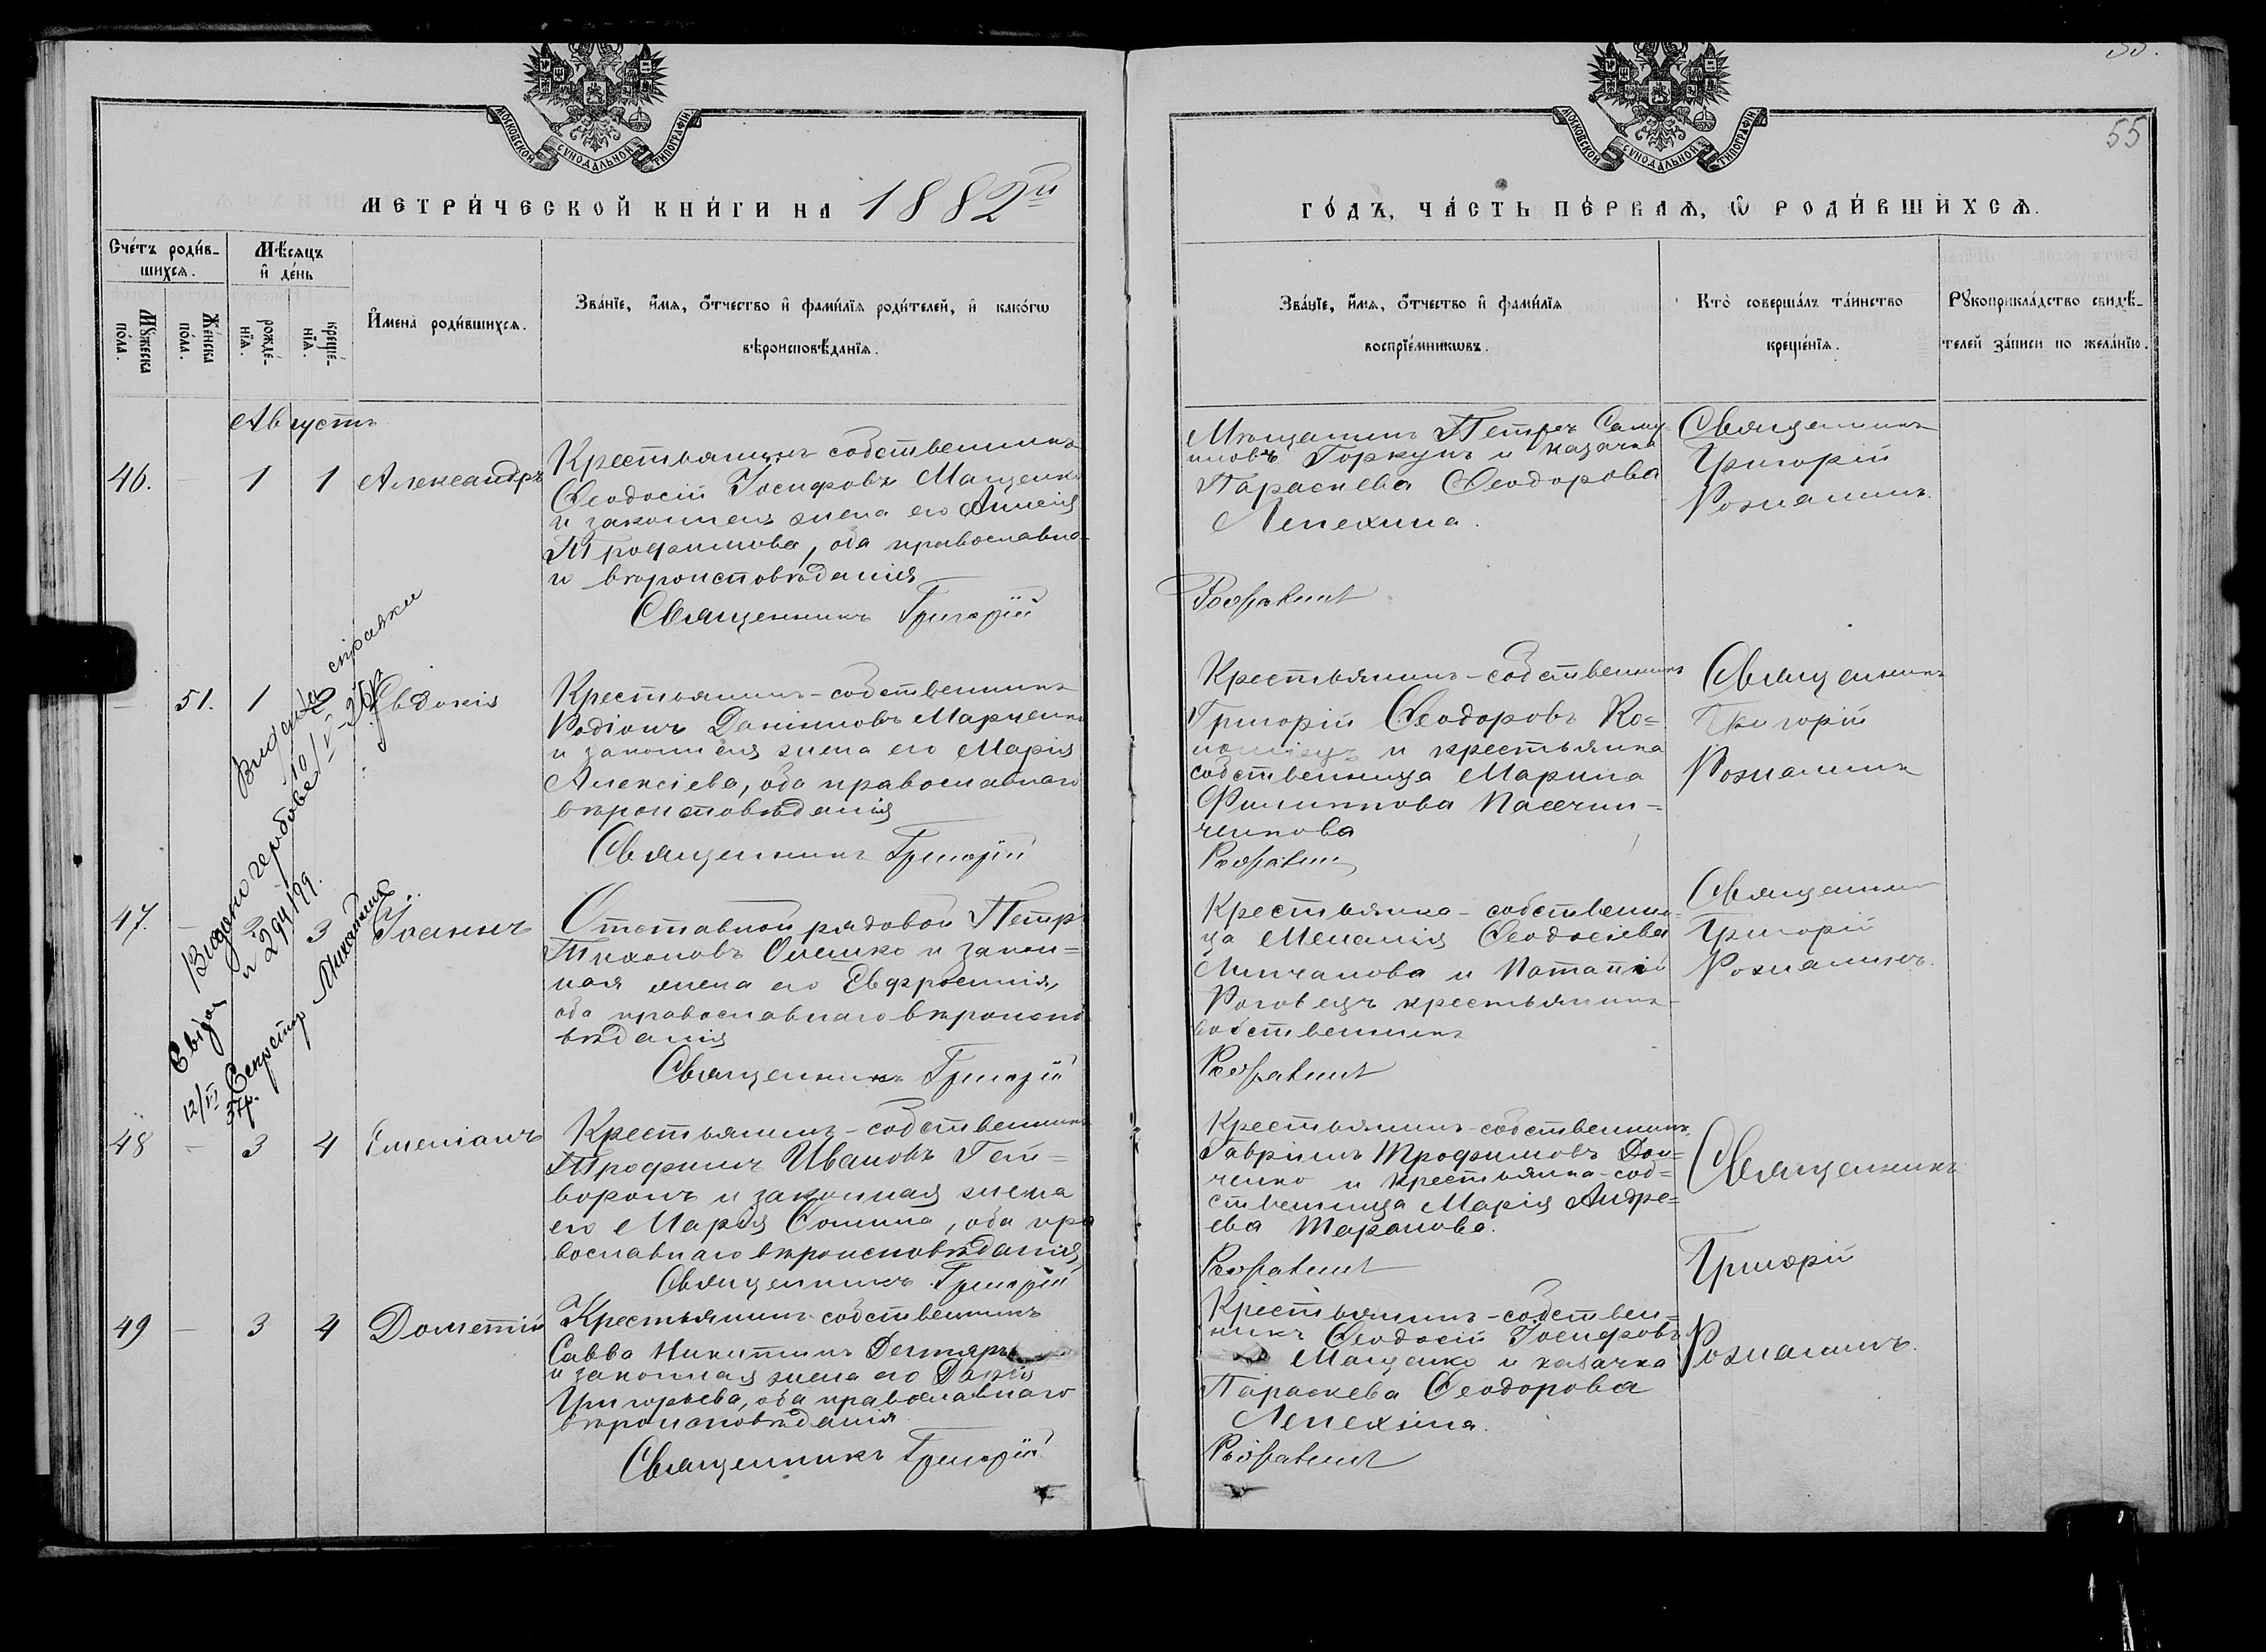 МОСКОВСКОЙ СѴНОДАЛЬНОЙ ТИПОГРАФІИ
МЕТРИ́ЧЕСКОЙ КНИ́ГИ НА 1882й
Сче́тъ роди́в-
шихсѧ.
Мѣ́сѧцъ
и҆ де́нь
Мꙋ́жеска
по́ла.
Же́нска
по́ла.
рожде́-
нїѧ.
креще́-
нїѧ.
И҆мена̀ роди́вшихсѧ.
Зва́нїе, и҆́мѧ, ѻ҆́тчество и҆ фами́лїѧ роди́телей, и҆ како́гѡ
вѣроисповѣ́данїѧ.
Августъ
46. — 1 1 Александръ
Крестьянинъ собственникъ
Ѳеодосій Іосифовъ Мащенко
и законная жена его Анисія
Трофимова, оба православна-
го вѣроисповѣданія
Священникъ Григорій
— 51. 1 Евдокія
Крестьянинъ-собственникъ
Родіонъ Даніиловъ Марченко
и законная жена его Марія
Алексіева, оба православнаго
вѣроисповѣданія
Священникъ Григорій
справки
10/V-
Видано
и 294/99.
12/VI Секретар
37р.
47. — 3 3 Іоаннъ
Отставной рядовой Петръ
Тихоновъ Олешко и закон=
ная жена его Евфросинія,
оба православнаго вѣроиспо
вѣданія
Священникъ Григорій
48 — 3 4 Емеліанъ
Крестьянинъ-собственникъ
Трофимъ Ивановъ Гей=
воронъ и законная жена
его Марія Сомина, оба пра
вославнаго вѣроисповѣданія
Священникъ Григорій
49 — 3 4 Дометій
Крестьянинъ-собственникъ
Савва Никитинъ Дегтярь
и законная жена его Дарія
Григорьева, оба православнаго
вѣроисповѣданія
Священникъ Григорій
55
МОСКОВСКОЙ СѴНОДАЛЬНОЙ ТИПОГРАФІИ
ГО́ДЪ, ЧА́СТЬ ПЕ́РВАѦ, Ѡ҆ РОДИ́ВШИХСѦ.
Зва́нїе, и҆́мѧ, ѻ҆́тчество и҆ фами́лїѧ
воспрїе́мникѡвъ.
Кто̀ соверша́лъ та́инство
креще́нїѧ.
Рꙋкоприкла́дство свидѣ́-
телей за́писи по жела́нїю.
Мѣщанинъ Петръ Саму
иловъ Горкунъ и казачка
Параскева Ѳеодорова
Лепехина.
Священникъ
Григорій
Рожалинъ.
Крестьянинъ-собственникъ
Григорій Ѳеодоровъ Ко=
и крестьянка
собственница Марина
Филиппова Пасечни=
ченкова
Священникъ
Григорій
Рожалинъ
Крестьянка-собственни-
ца Меланія Ѳеодосіева
Линчанова и Потапій
Роговецъ крестьянинъ
собственникъ
Священникъ
Григорій
Рожалинъ.
Крестьянинъ-собственникъ
Гавріилъ Трофимовъ Дон=
ченко и крестьянка-соб=
ственница Марія Андре=
ева Таранова.
Священникъ
Григорій
Рожалинъ.
Крестьянинъ-собствен=
никъ Ѳеодосій Іосифовъ
Мащенко и казачка
Параскева Ѳеодорова
Лепехина.